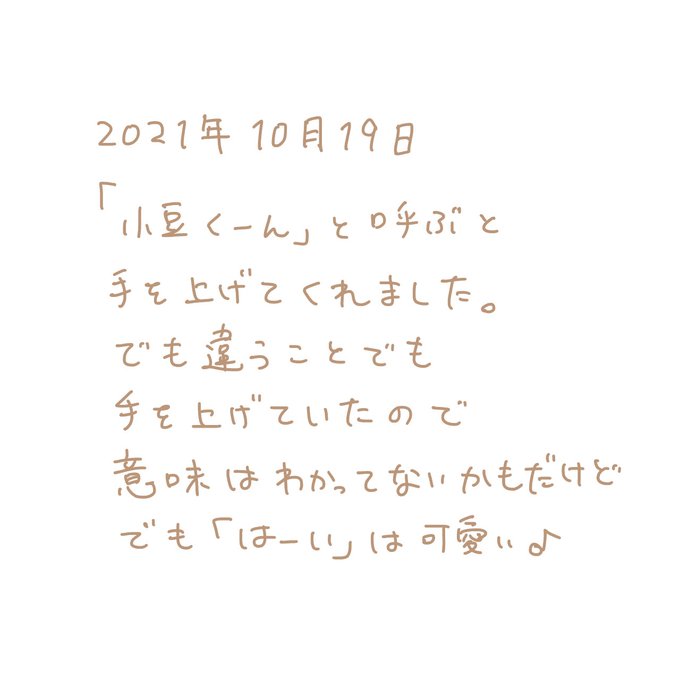 2021年10月19日
「小豆くーん」と呼ぶと
手を上げてくれました。
でも違うことでも
手を上げていたので
意味はわかってないかもだけど
でも「はーい」は可愛い♪